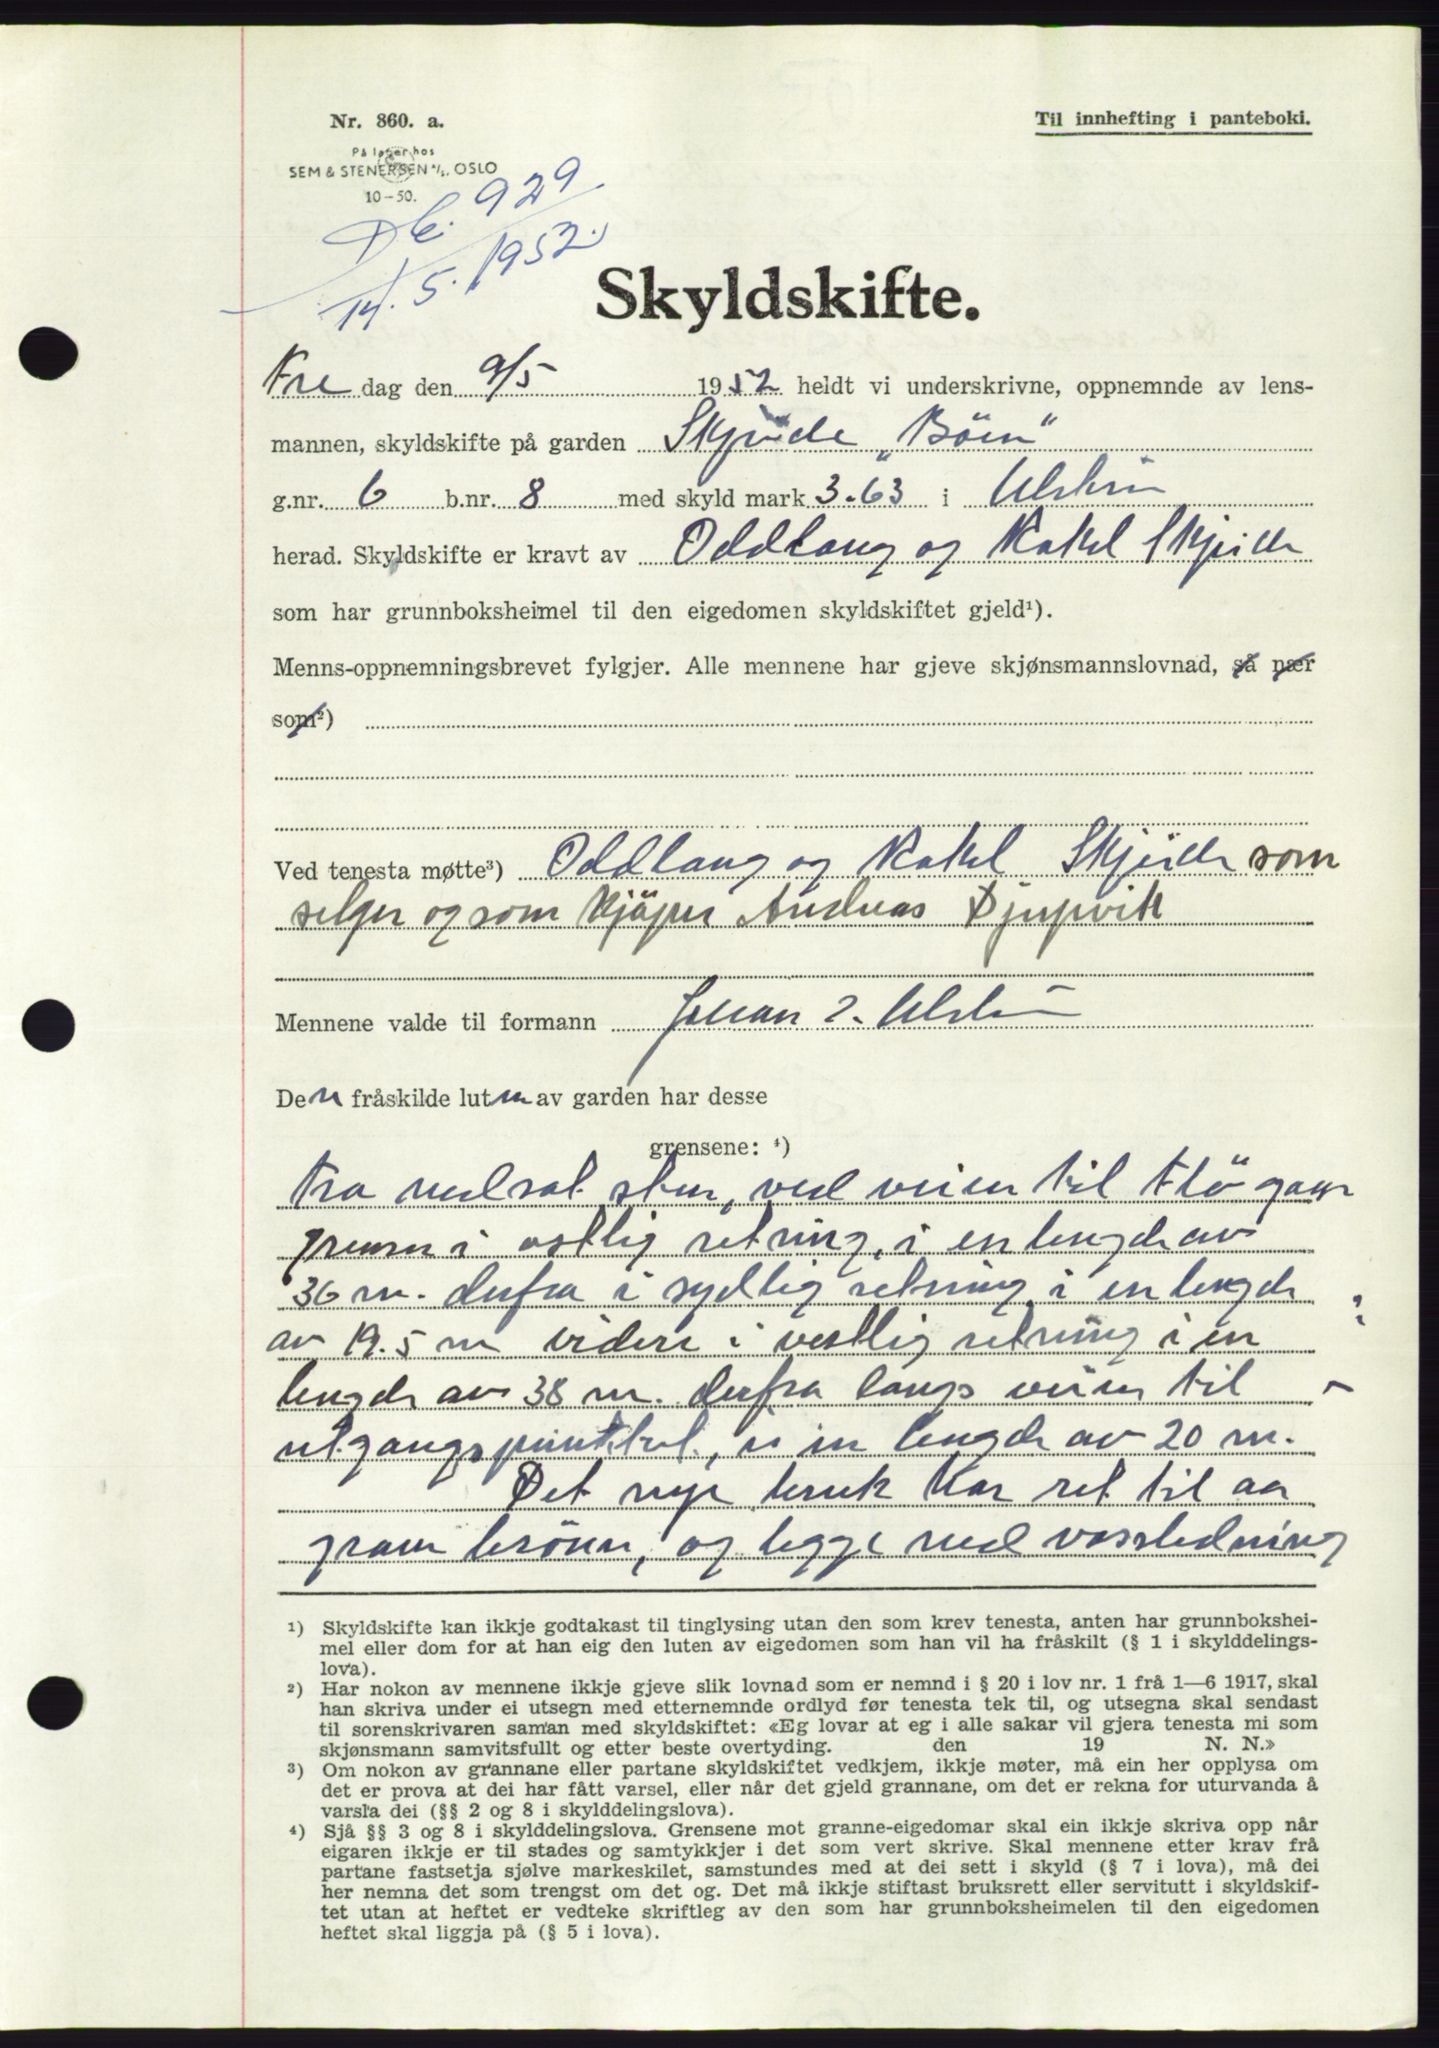 Nr. 860. a.
Til innhefting i panteboki.
På lager hos
SEM & STENERSEN A/S, OSLO
10-50.
929
14. 5. 1952.
Skyldskifte.
Fre dag den 9/5 1952 heldt vi underskrivne, oppnemnde av lens-
mannen, skyldskifte på garden Skjeide "Böen"
g.nr. 6 b.nr. 8 med skyld mark 3.63 i Ulstein
herad. Skyldskifte er kravt av Oddlaug og Rakel Skjeide
som har grunnboksheimel til den eigedomen skyldskiftet gjeld¹).
Menns-oppnemningsbrevet fylgjer. Alle mennene har gjeve skjønsmannslovnad, så nær
som²)
Ved tenesta møtte³) Oddlaug og Rakel Skjeide som
selger og som kjöper Andreas Djupvik
Mennene valde til formann Johan J. Ulstein
Den fråskilde luten av garden har desse
grensene: ⁴)
Fra nedsat sten, ved veien til Flö gaar
grensen i ostlig retning, i en lengde av
36 m. derfra i sydlig retning i en lengde
av 19.5 m videre i vestlig retning i en
lengde av 38 m. derfra langs veien til
utgangspunktet, i en lengde av 20 m.
Det nye bruk har ret til aa
grave brönn, og legge ned vassledning
¹) Skyldskifte kan ikkje godtakast til tinglysing utan den som krev tenesta, anten har grunnbokshei-
mel eller dom for at han eig den luten av eigedomen som han vil ha fråskilt (§ 1 i skylddelings-
lova).
²) Har nokon av mennene ikkje gjeve slik lovnad som er nemnd i § 20 i lov nr. 1 frå 1—6 1917, skal
han skriva under ei utsegn med etternemnde ordlyd før tenesta tek til, og utsegna skal sendast
til sorenskrivaren saman med skyldskiftet: «Eg lovar at eg i alle sakar vil gjera tenesta mi som
skjønsmann samvitsfullt og etter beste overtyding. den 19 N. N.»
³) Om nokon av grannane eller partane skyldskiftet vedkjem, ikkje møter, må ein her opplysa om
det er prova at dei har fått varsel, eller når det gjeld grannane, om det er rekna for uturvanda å
varsla dei (§§ 2 og 8 i skylddelingslova).
⁴) Sjå §§ 3 og 8 i skylddelingslova. Grensene mot granne-eigedomar skal ein ikkje skriva opp når
eigaren ikkje er til stades og samtykkjer i det som vert skrive. Skal mennene etter krav frå
partane fastsetja sjølve markeskilet, samstundes med at dei sett i skyld (§ 7 i lova), må dei
her nemna det som trengst om det og. Det må ikkje stiftast bruksrett eller servitutt i skyldskif-
tet utan at heftet er vedteke skriftleg av den som har grunnboksheimelen til den eigedomen
heftet skal liggja på (§ 5 i lova).